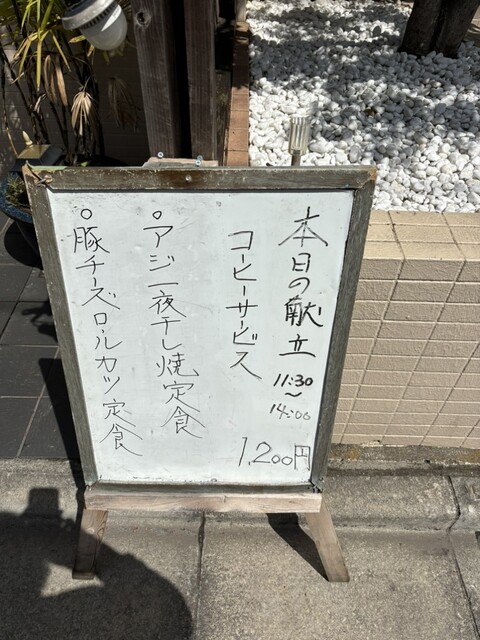 本日の献立
11:30
〜
14:00
コーヒーサービス
1,200円
○アジ一夜干し焼定食
○豚チーズロールカツ定食